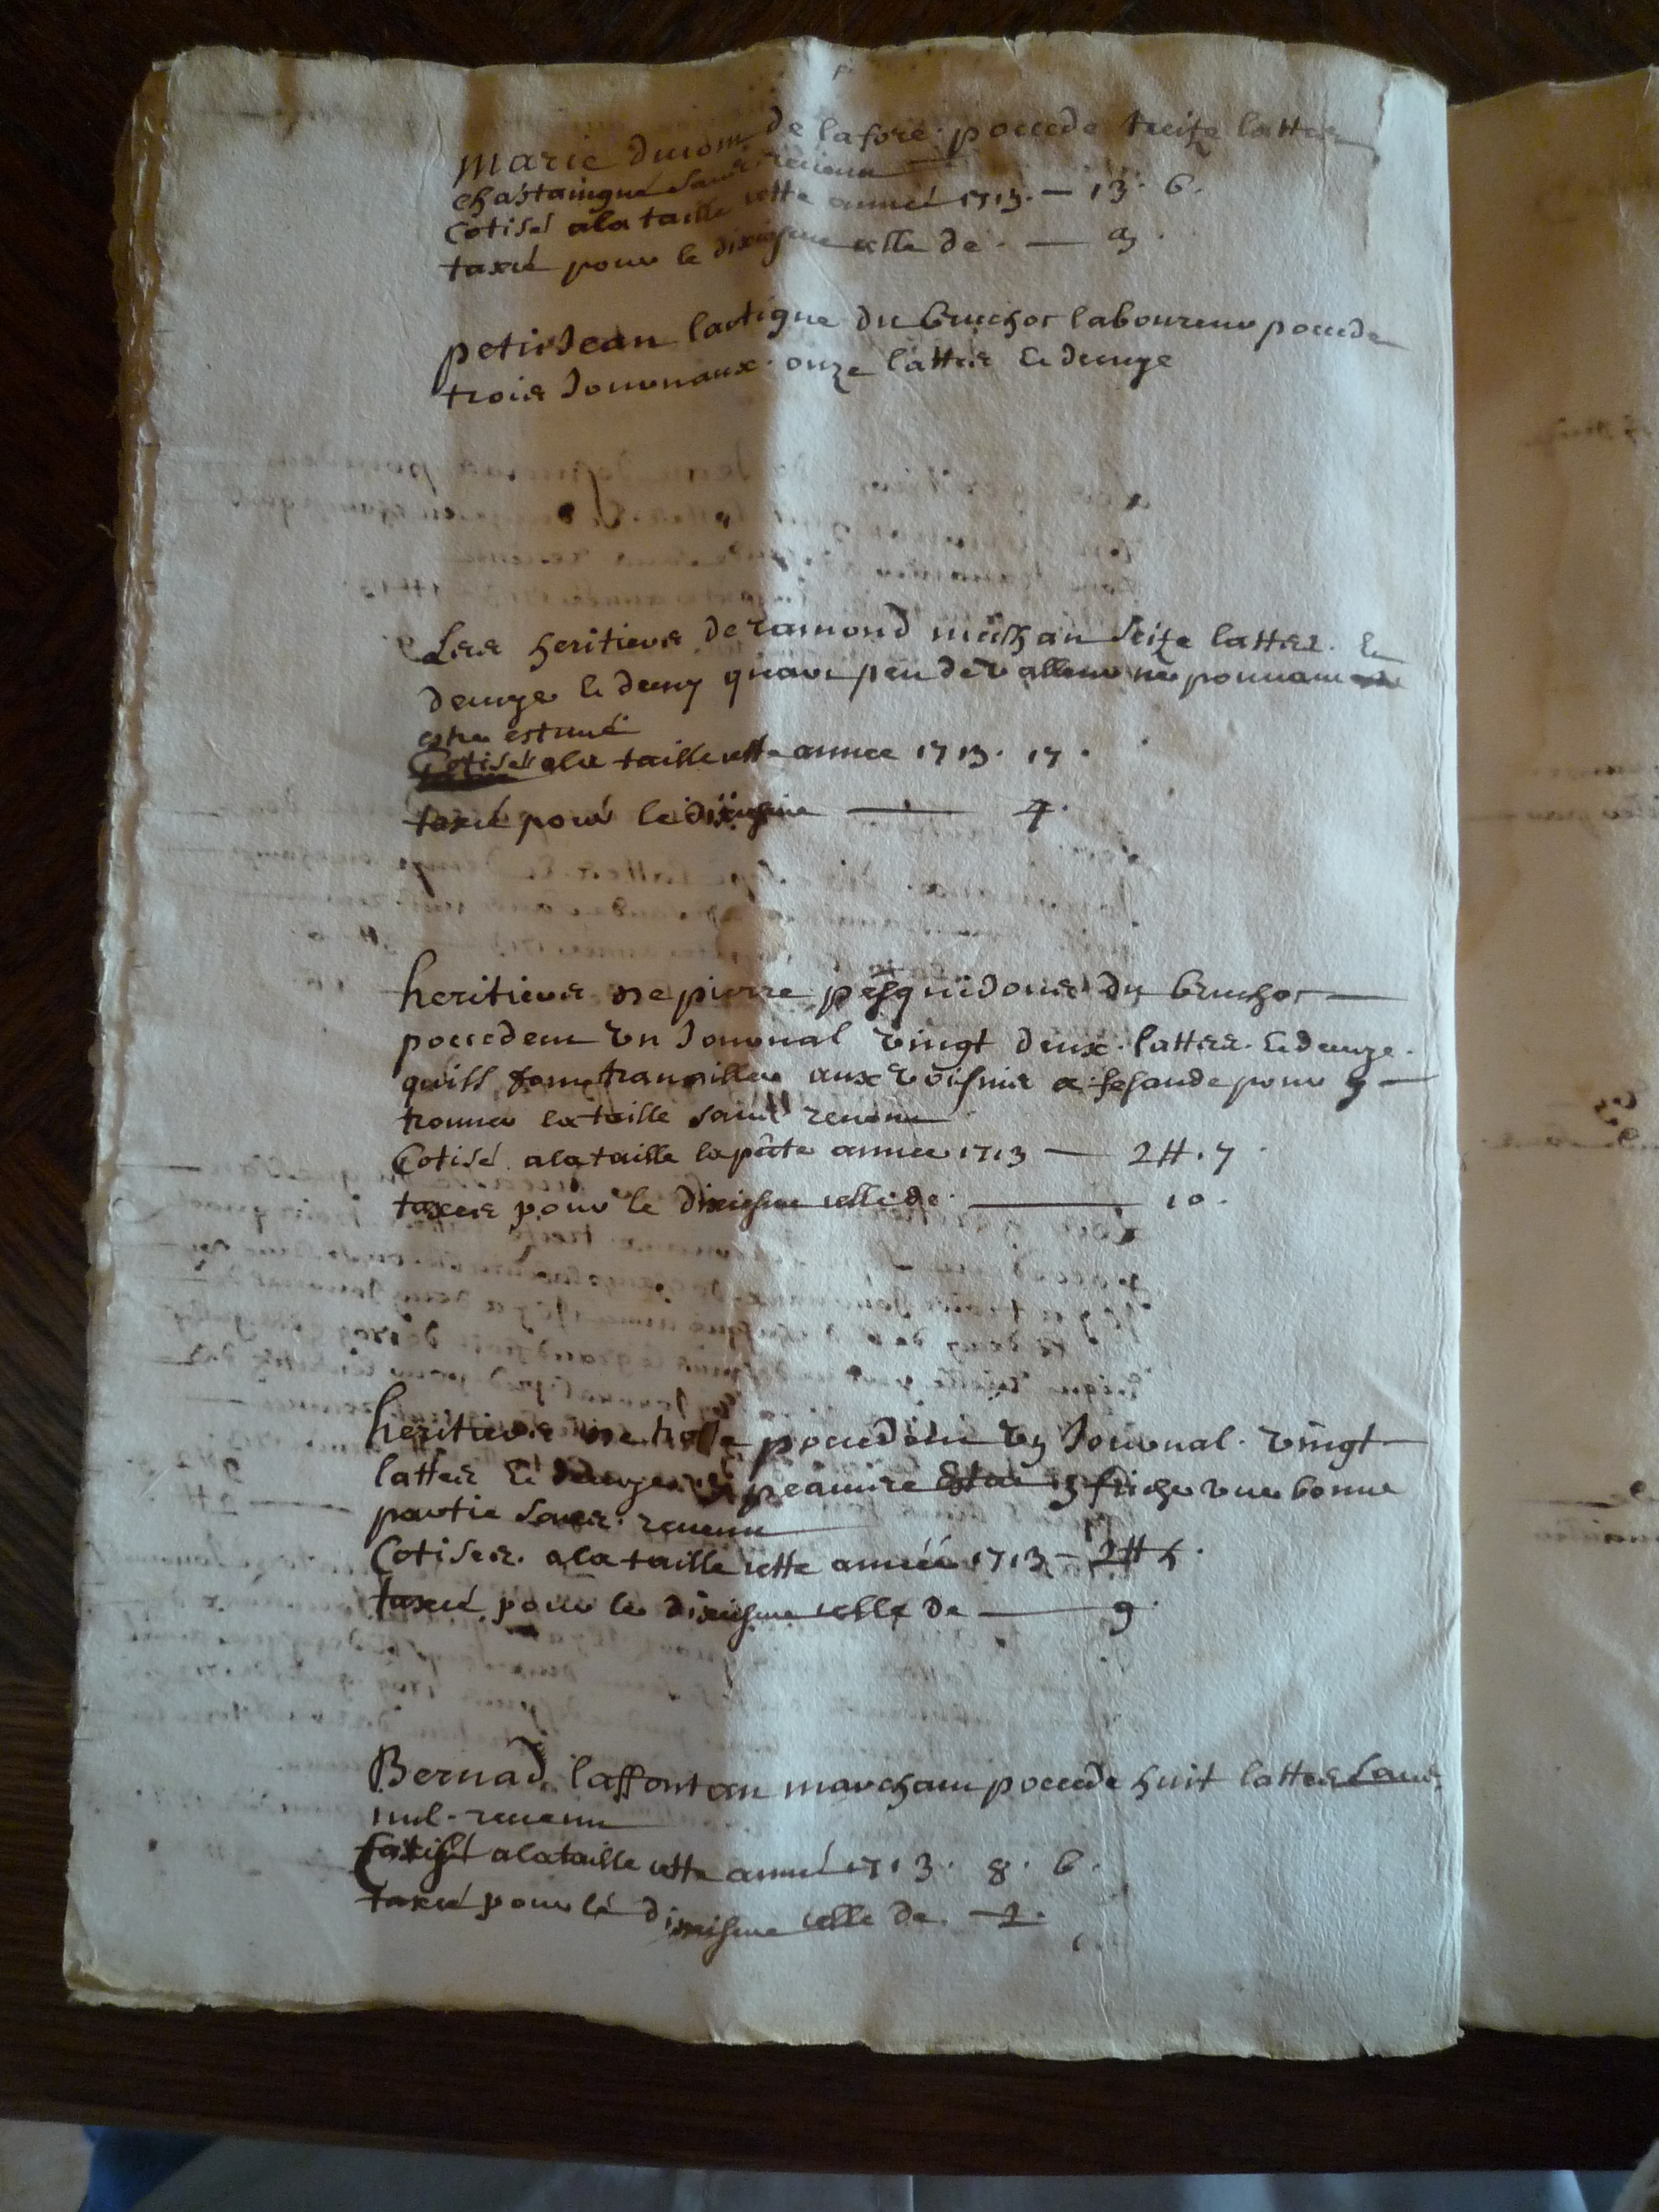 Marie de lafore poccede treize lattes
chastaingné sans revenu
Cotisé a la taille cette année 1713. — 13. 6.
taxcé pour le dixiesme celle de. — 3.
petit Jean lartigue du bruchot laboureur poccede
trois Journaux onze lattes Et demye
Les heritiers de ramond seize lattes. Et
demye Et demy quart peu de valleur ne pouvant
estre estimé
Cotisés a la taille cette annee 1713. 17.
taxcé pour le dixiesme — 4.
heritiers de pierre pesquidoux du bruchot —
poccedent un Journal vingt deux lattes. Et demye.
quills font travailler aux voisins a pour y —
trouver la taille sans revenu
Cotisé a la taille la pñte annee 1713 — 2 ₶. 7
taxces pour le dixiesme celle de — 10.
heritiers de poccedent un Journal vingt
lattes Et demye friche une bonne
partie sans revenu
Cotises. a la taille cette année 1713 — 2 ₶ 5.
taxcé pour le dixiesme celle de — 9.
Bernad laffontan marchant poccede huit lattes sans
nul revenu
Cotisé a la taille cette année 1713. 8. 6.
taxcé pour le dixiesme celle de. 2.